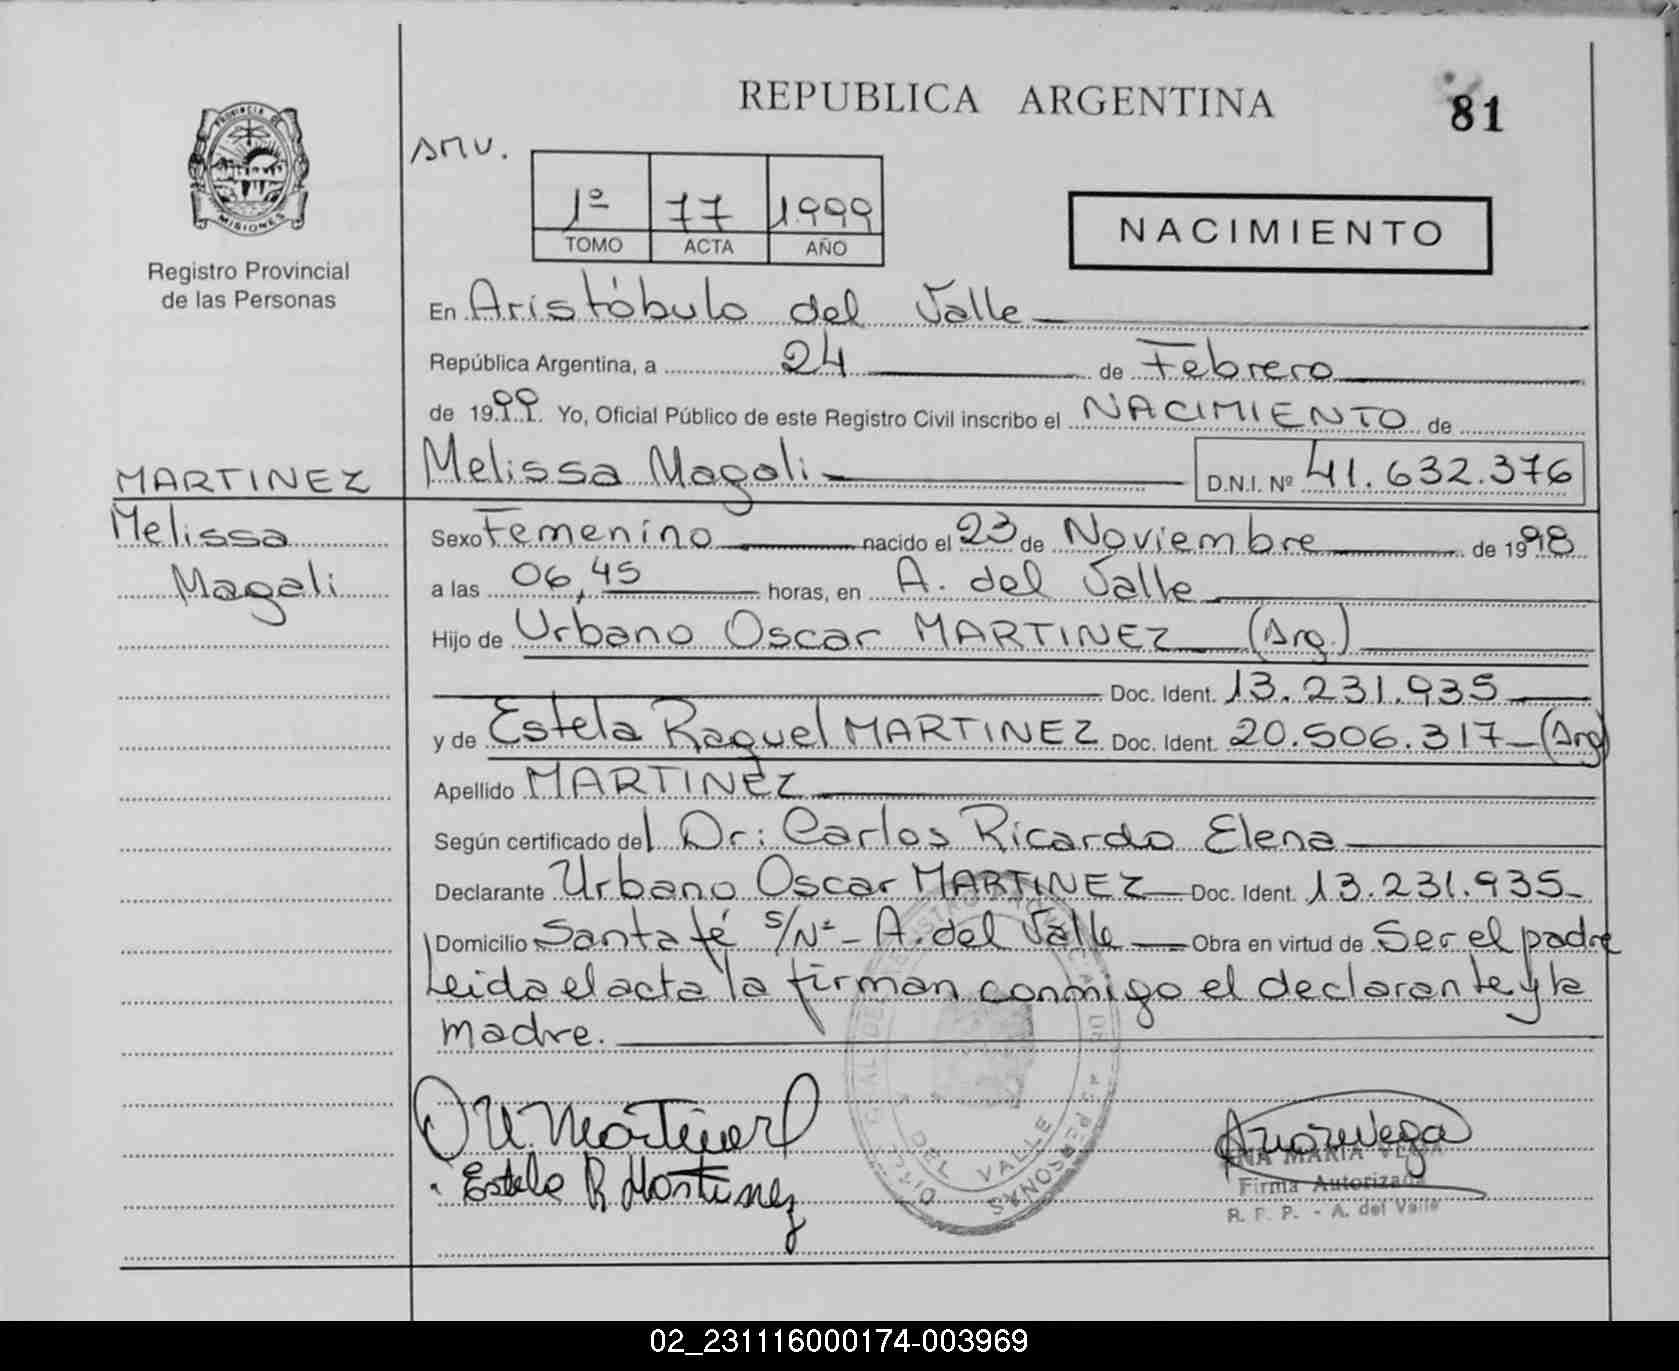 REPUBLICA ARGENTINA
81
PROVINCIA DE
MISIONES
Registro Provincial
de las Personas
1º 77 1999
TOMO ACTA AÑO
NACIMIENTO
En Aristóbulo del Valle
República Argentina, a 24 de Febrero
de 1999. Yo, Oficial Público de este Registro Civil inscribo el NACIMIENTO de
MARTINEZ
Melissa
Magali
Melissa Magali D.N.I. Nº 41.632.376
Sexo Femenino nacido el 23 de Noviembre de 1998
a las 06,45 horas, en A. del Valle
Hijo de Urbano Oscar MARTINEZ (Arg.)
Doc. Ident. 13.231.935
y de Estela Raquel MARTINEZ Doc. Ident. 20.506.317 (Arg)
Apellido MARTINEZ
Según certificado del Dr: Carlos Ricardo Elena
Declarante Urbano Oscar MARTINEZ Doc. Ident. 13.231.935
Domicilio Santa fé s/Nº - A. del Valle Obra en virtud de Ser el padre
Leida el acta la firman conmigo el declarante y la
madre.
Estela R Martinez
DEL VALLE
PERSONAS
ANA MARIA VEGA
Firma Autorizada
R. P. P. - A. del Valle
02_231116000174-003969